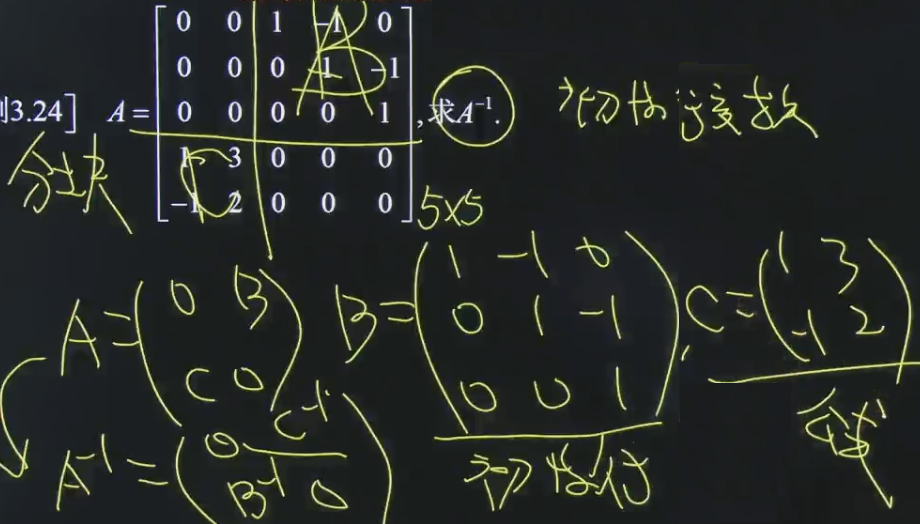 例3.24] A = [0 0 1 -1 0
0 0 0 1 -1
0 0 0 0 1
1 3 0 0 0
-1 2 0 0 0], 求A⁻¹.
初等变换
分块
5×5
A = (0 B
C 0)
B = (1 -1 0
0 1 -1
0 0 1), C = (1 3
-1 2)
A⁻¹ = (0 C⁻¹
B⁻¹ 0)